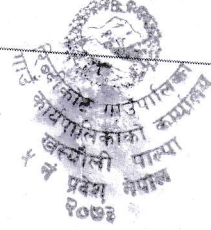 गाउँपालिका
गाउँ कार्यपालिकाको कार्यालय
खस्यौली पाल्पा
५ नं प्रदेश नेपाल
२०७३